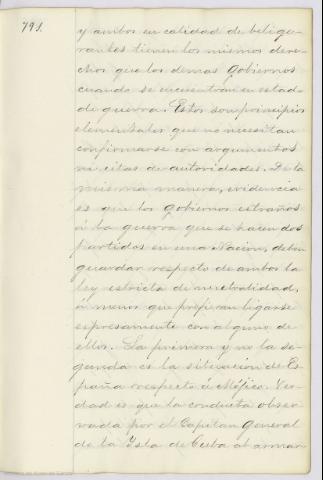 791.
y ambos en calidad de belige-
rantes tienen los mismos dere-
chos que los demas Gobiernos
cuando se encuentran en estado
de guerra. Estos son principios
elementales que no necesitan
confirmarse con argumentos
ni citas de autoridades. De la
misma manera, evidencia
es que los Gobiernos estraños
á la guerra que se hacen dos
partidos en una Nacion, deben
guardar respecto de ambos la
ley estricta de neutralidad,
á menos que prefieran ligarse
espresamente con alguno de
ellos. La primera y no la se-
gunda es la situacion de Es-
paña respecto á Méjico. Ver-
dad es que la conducta obser-
vada por el Capitan General
de la Isla de Cuba al armar